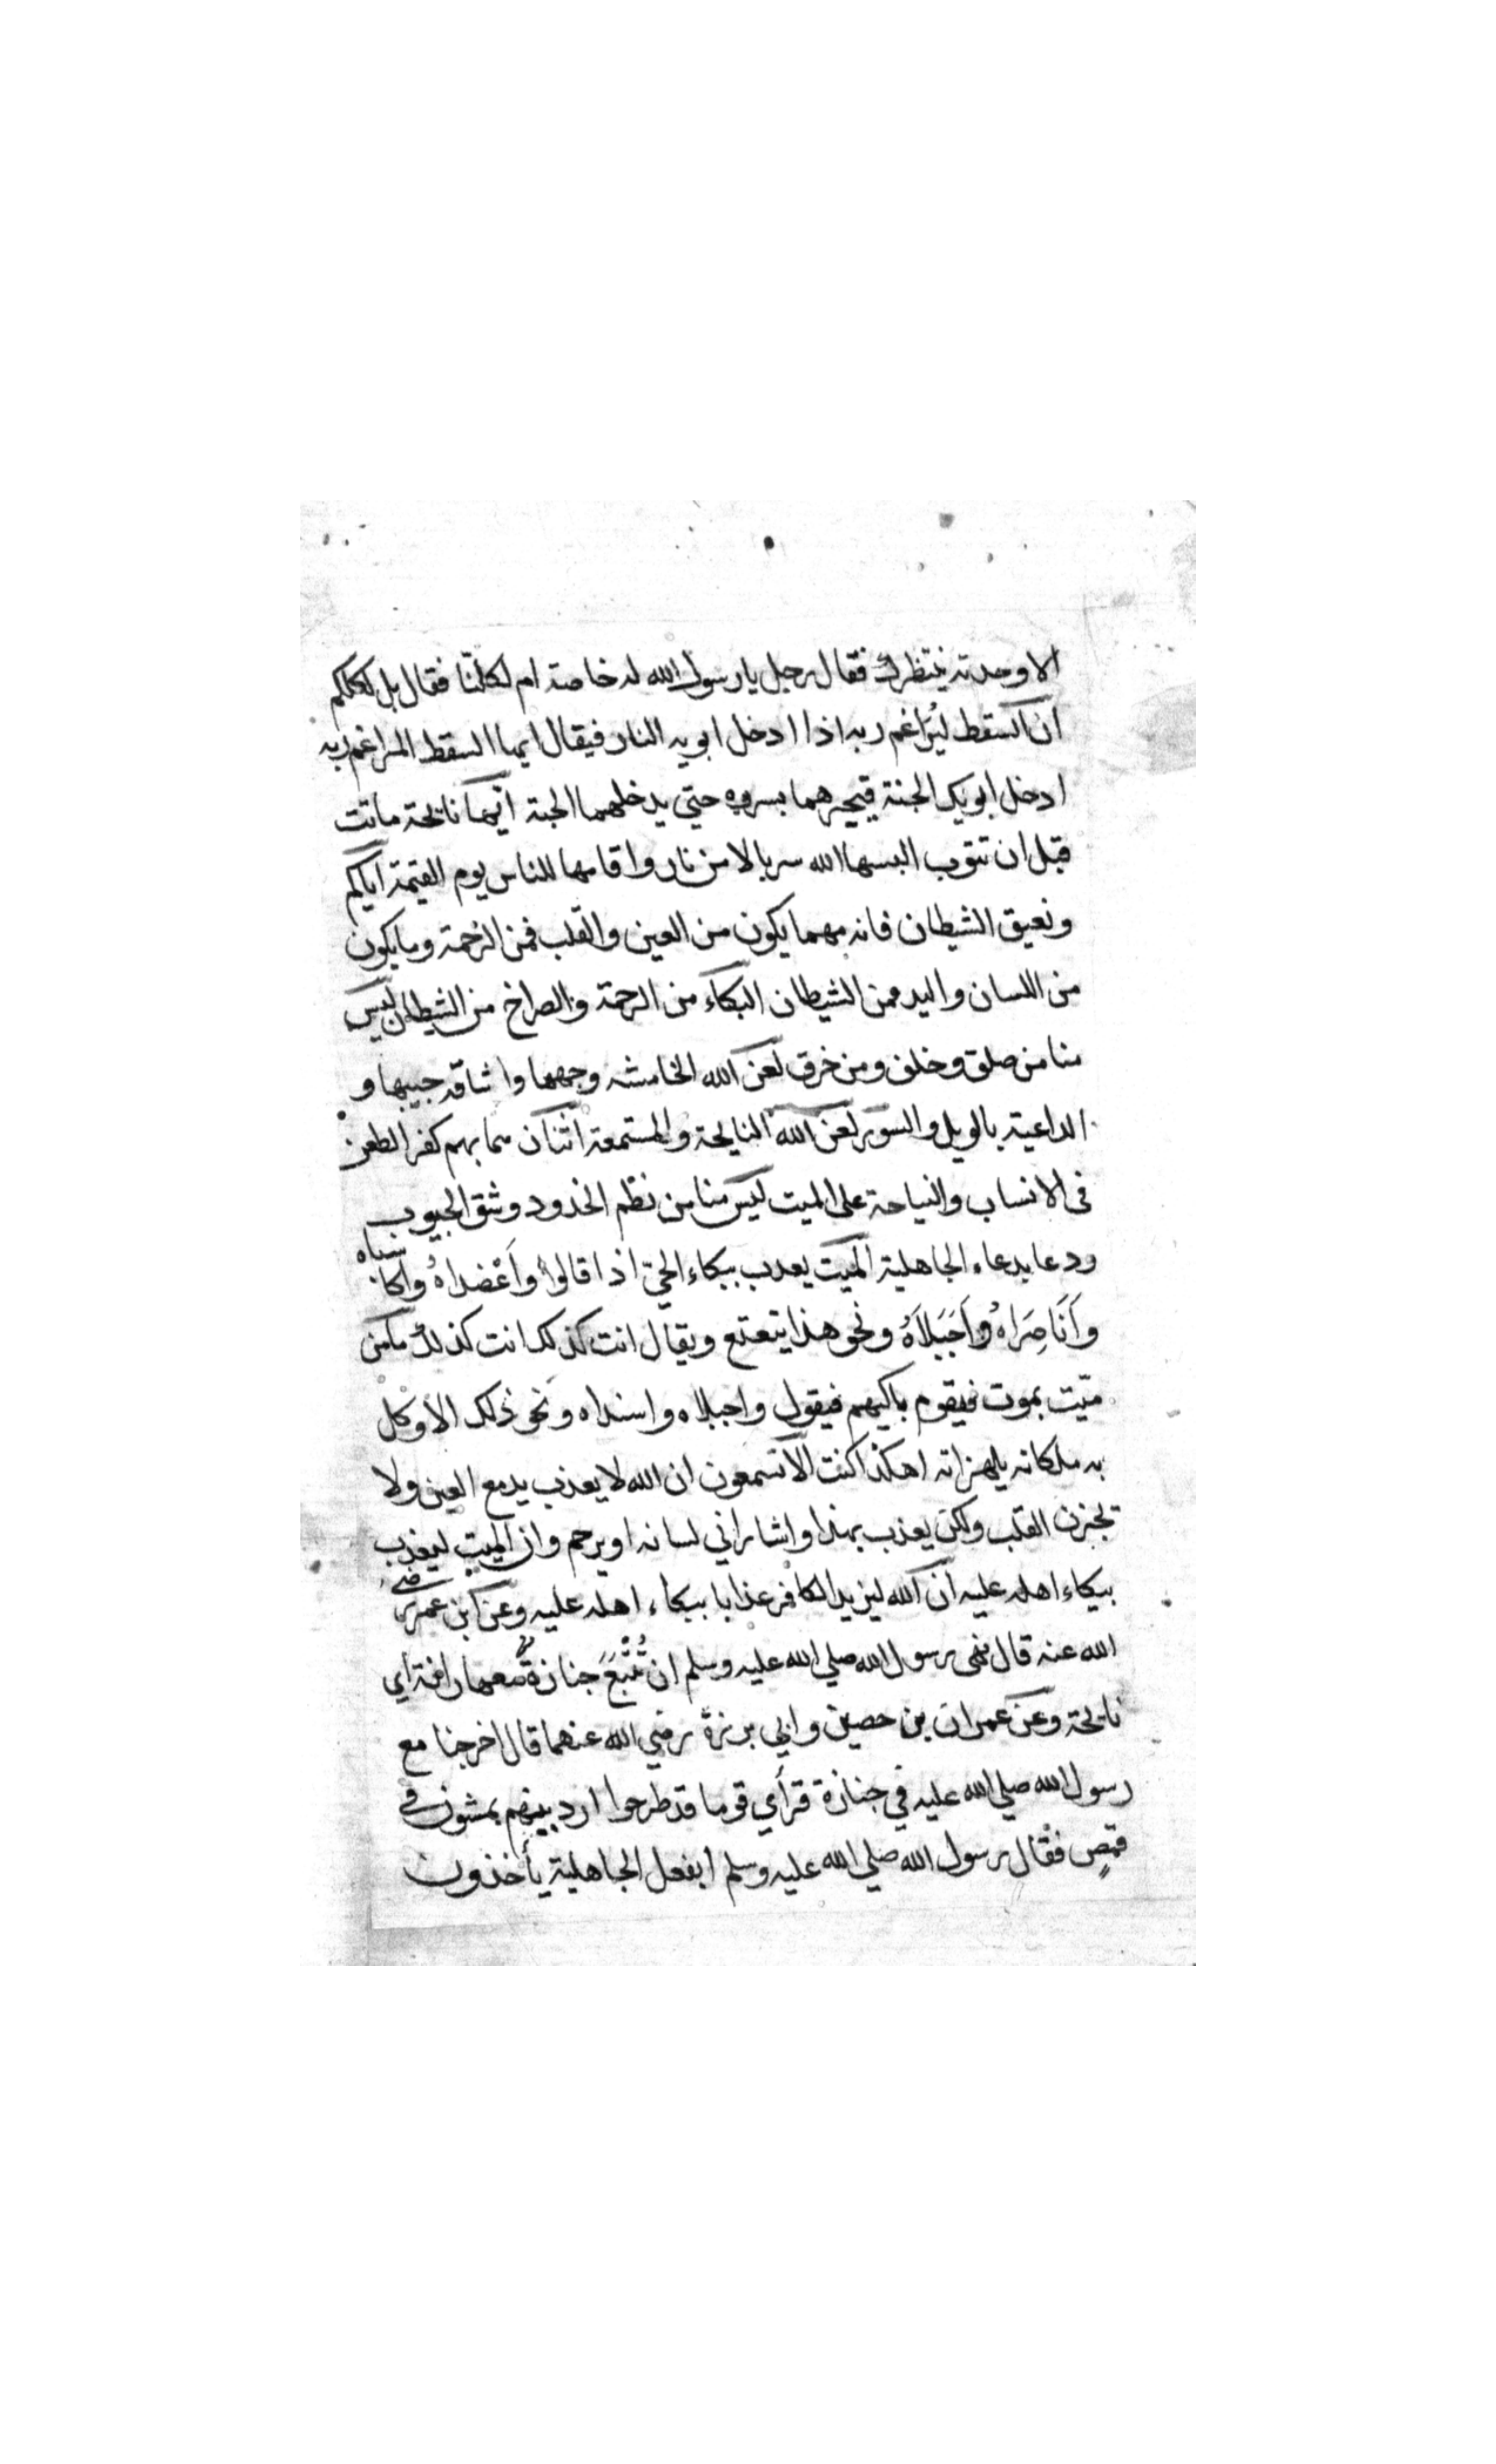 الا وجدته ينتظرك فقال رجل يا رسول الله له خاصة ام لكلنا فقال بل لكلكم
ان السقط ليُراغم ربه اذا ادخل ابويه النار فيقال ايها السقط المراغم ربه
ادخل ابويك الجنة فيجرهما بسرره حتي يدخلهما الجنة ايما نايحة ماتت
قبل ان تتوب البسها الله سربالا من نار واقامها للناس يوم القيمة اياكم
ونعيق الشيطان فانه مهما يكون من العين والقلب فمن الرحمة وما يكون
من اللسان واليد فمن الشيطان البكاء من الرحمة والصراخ من الشيطان ليس
منا من صلق وحلق ومن خرق لعن الله الخامشه وجهها والشاقه جيبها و
الداعية بالويل والسور لعن الله النايحة والمستمعة اثنان هما بهم كفر الطعن
فى الانساب والنياحة على الميت ليس منا من لطم الخدود وشق الجيوب
ودعا بدعاء الجاهلية الميت يعذب ببكاء الحي اذا قالوا وَاعَضُداهُ واكاسياه
وَانَاصِرَاهُ وَاجَبَلاَهُ ونحو هذا يتعتع ويقال انت كذلك انت كذلك ما من
ميّت يموت فيقوم باكيهم فيقول واجبلاه واسنداه ونحو ذلك الا وكل
به ملكانه يلهزانه اهكذا كنت الا تسمعون ان الله لا يعذب بدمع العين ولا
بحزن القلب ولكن يعذب بهذا واشار الي لسانه او يرحم وان الميت ليعذب
ببكاء اهله عليه ان الله ليزيد الكافر عذابا ببكاء اهله عليه وعن ابن عمر رضي
الله عنه قال نهى رسول الله صلي الله عليه وسلم ان تُتْبَعَ جنازةٌ معها رانة اي
نايحة وعن عمران بن حصين وابي برزة رضي الله عنهما قال اخرجنا مع
رسول الله صلي الله عليه في جنازة فرأي قوما قد طرحوا ارديتهم يمشون في
قمصٍ فقال رسول الله صلي الله عليه وسلم ابفعل الجاهلية يأخذون